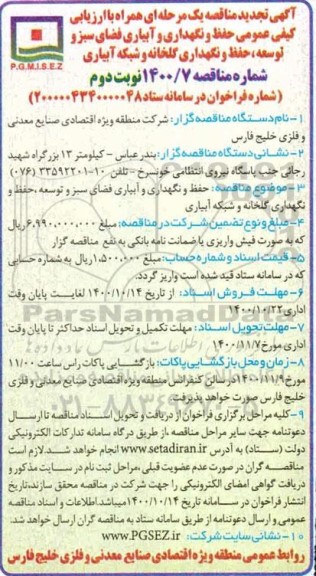 آگهی تجدید مناقصه یک مرحله ای همراه با ارزیابی
کیفی عمومی حفظ و نگهداری و آبیاری فضای سبز و
توسعه، حفظ و نگهداری گلخانه و شبکه آبیاری
P.G.M.I.S.E.Z
شماره مناقصه ۱۴۰۰/۷ نوبت دوم
(شماره فراخوان در سامانه ستاد ۲۰۰۰۰۰۴۳۴۰۰۰۰۰۴۸)
۱- نام دستگاه مناقصه گزار: شرکت منطقه ویژه اقتصادی صنایع معدنی
و فلزی خلیج فارس
۲- نشانی دستگاه مناقصه گزار: بندرعباس - کیلومتر ۱۳ بزرگراه شهید
رجائی جنب پاسگاه نیروی انتظامی خونسرخ - تلفن ۱۰-۳۳۵۹۲۲۰۱ (۰۷۶)
۳- موضوع مناقصه: حفظ و نگهداری و آبیاری فضای سبز و توسعه، حفظ و
نگهداری گلخانه و شبکه آبیاری
۴- مبلغ و نوع تضمین شرکت در مناقصه: مبلغ ۶,۹۹۰,۰۰۰,۰۰۰ ریال
که به صورت فیش واریزی یا ضمانت نامه بانکی به نفع مناقصه گزار
۵- قیمت اسناد و شماره حساب: مبلغ ۱,۵۰۰,۰۰۰ ریال به شماره حسابی
که در سامانه ستاد قید شده است واریز گردد.
۶- مهلت فروش اسناد: از تاریخ ۱۴۰۰/۱۰/۱۴ لغایت پایان وقت
اداری ۱۴۰۰/۱۰/۲۲
۷- مهلت تحویل اسناد: مهلت تکمیل و تحویل اسناد حداکثر تا پایان وقت
اداری مورخ ۱۴۰۰/۱۱/۷
۸- زمان و محل بازگشایی پاکات: بازگشایی پاکات راس ساعت ۱۱/۰۰
مورخ ۱۴۰۰/۱۱/۹ در سالن کنفرانس منطقه ویژه اقتصادی صنایع معدنی و فلزی
خلیج فارس صورت خواهد پذیرفت.
۹- کلیه مراحل برگزاری فراخوان از دریافت و تحویل اسناد مناقصه تا ارسال
دعوتنامه جهت سایر مراحل مناقصه، از طریق درگاه سامانه تدارکات الکترونیکی
دولت (ستاد) به آدرس www.setadiran.ir انجام خواهد شد. لازم است
مناقصه گران در صورت عدم عضویت قبلی، مراحل ثبت نام در سایت مذکور و
دریافت گواهی امضای الکترونیکی را جهت شرکت در مناقصه محقق سازند، تاریخ
انتشار فراخوان در سامانه تاریخ ۱۴۰۰/۱۰/۱۴ میباشد. اطلاعات و اسناد مناقصه
عمومی و ارسال دعوتنامه از طریق سامانه ستاد به مناقصه گران ارسال خواهد شد.
۱۰- نشانی سایت شرکت: www.PGSEZ.ir
روابط عمومی منطقه ویژه اقتصادی صنایع معدنی و فلزی خلیج فارس